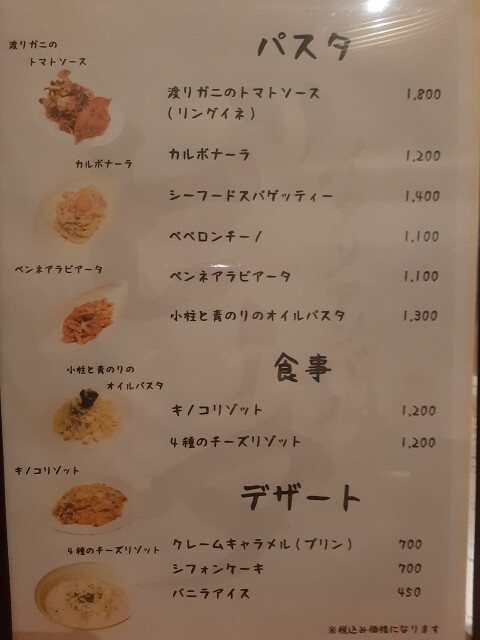 パスタ
渡リガニの
トマトソース
渡リガニのトマトソース 1,800
(リングイネ)
カルボナーラ
カルボナーラ 1,200
シーフードスパゲッティー 1,400
ペペロンチーノ 1,100
ペンネアラビアータ
ペンネアラビアータ 1,100
小柱と青のりのオイルパスタ 1,300
小柱と青のりの
オイルパスタ
食事
キノコリゾット 1,200
4種のチーズリゾット 1,200
キノコリゾット
デザート
4種のチーズリゾット
クレームキャラメル(プリン) 700
シフォンケーキ 700
バニラアイス 450
※税込み価格になります